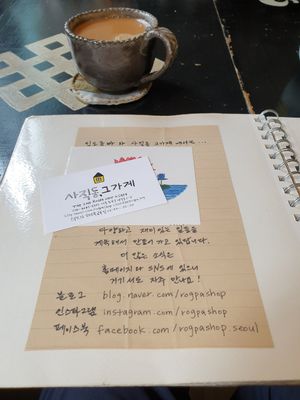 사직동, 그가게
다양하고 재미있는 일들을
계속해서 만들어 가고 있습니다.
더 많은 소식은
홈페이지와 SNS에 있으니
거기서도 자주 만나요!
블로그 blog.naver.com/rogpashop
인스타그램 instagram.com/rogpashop
페이스북 facebook.com/rogpashop.seoul